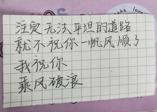 注定无法平坦的道路
就不祝你一帆风顺了
我祝你
乘风破浪